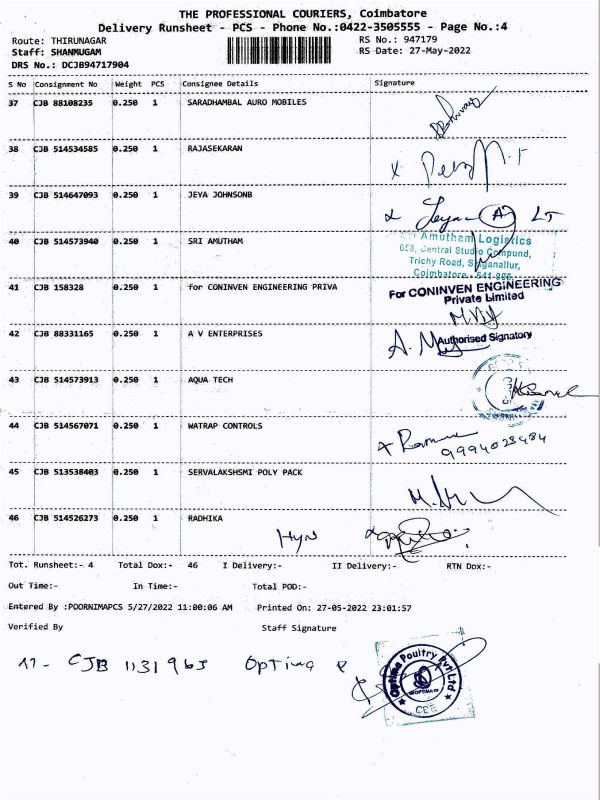 THE PROFESSIONAL COURIERS, Coimbatore
Delivery Runsheet - PCS - Phone No.:0422-3505555 - Page No.:4
Route: THIRUNAGAR RS No.: 947179
Staff: SHANMUGAM RS Date: 27-May-2022
DRS No.: DCJB94717904
S No Consignment No Weight PCS Consignee Details Signature
37 CJB 88108235 0.250 1 SARADHAMBAL AURO MOBILES
38 CJB 514534585 0.250 1 RAJASEKARAN
39 CJB 514647093 0.250 1 JEYA JOHNSONB
Jeya
40 CJB 514573940 0.250 1 SRI AMUTHAM
Amutham Logistics
Central Studio Compund,
Trichy Road, Singanallur,
Coimbatore
41 CJB 158328 0.250 1 for CONINVEN ENGINEERING PRIVA
For CONINVEN ENGINEERING
Private Limited
Authorised Signatory
42 CJB 88331165 0.250 1 A V ENTERPRISES
43 CJB 514573913 0.250 1 AQUA TECH
44 CJB 514567071 0.250 1 WATRAP CONTROLS
9994028484
45 CJB 513538403 0.250 1 SERVALAKSHSMI POLY PACK
46 CJB 514526273 0.250 1 RADHIKA
Tot. Runsheet:- 4 Total Dox:- 46 I Delivery:- II Delivery:- RTN Dox:-
Out Time:- In Time:- Total POD:-
Entered By :POORNIMAPCS 5/27/2022 11:00:06 AM Printed On: 27-05-2022 23:01:57
Verified By Staff Signature
CJB 1131965 Optima P
Optima Poultry Pvt Ltd
CBE